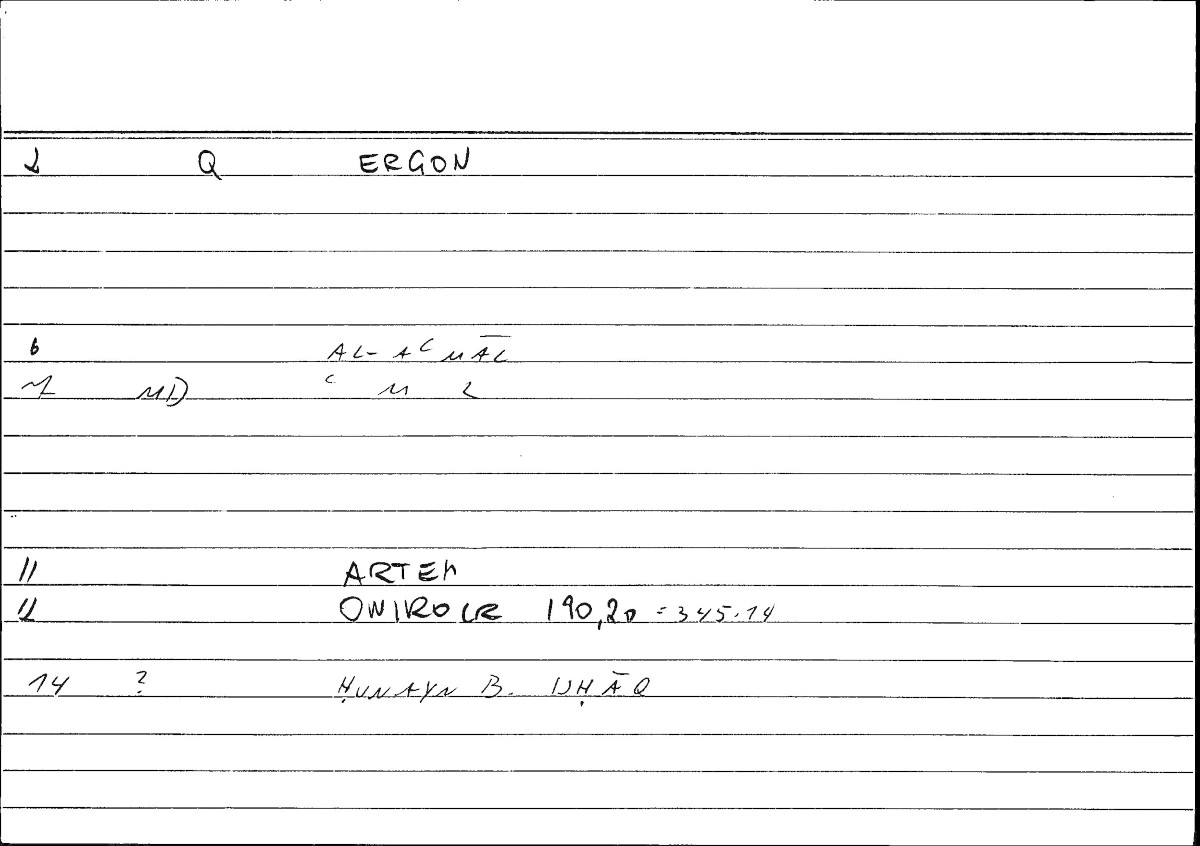 2 Q ERGON
6 AL-AʿMĀL
7 MD ʿ M L
11 ARTEM
12 ONIROCR 190,20 = 345.14
14 ? ḤUNAYN B. ISḤĀQ